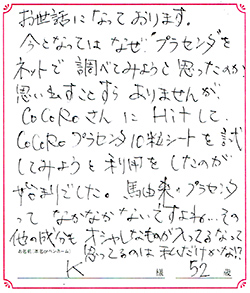 お世話になっております。
今となってはなぜ"プラセンダ"を
ネットで調べてみようと思ったのか
思い出すことすらありませんが、
CoCoRoさんにHitして、
CoCoRoプラセンダ10粒シートを試
してみようと利用をしたのが
始まりでした。馬由来のプラセンダ
ってなかなかないですよね…その
他の成分もオシャレなものが入ってるなって
思ってるのは私だけかな!?
お名前(本名orペンネーム)
K 様 52歳